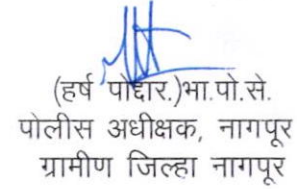 (हर्ष पोद्दार.)भा.पो.से.
पोलीस अधीक्षक, नागपूर
ग्रामीण जिल्हा नागपूर